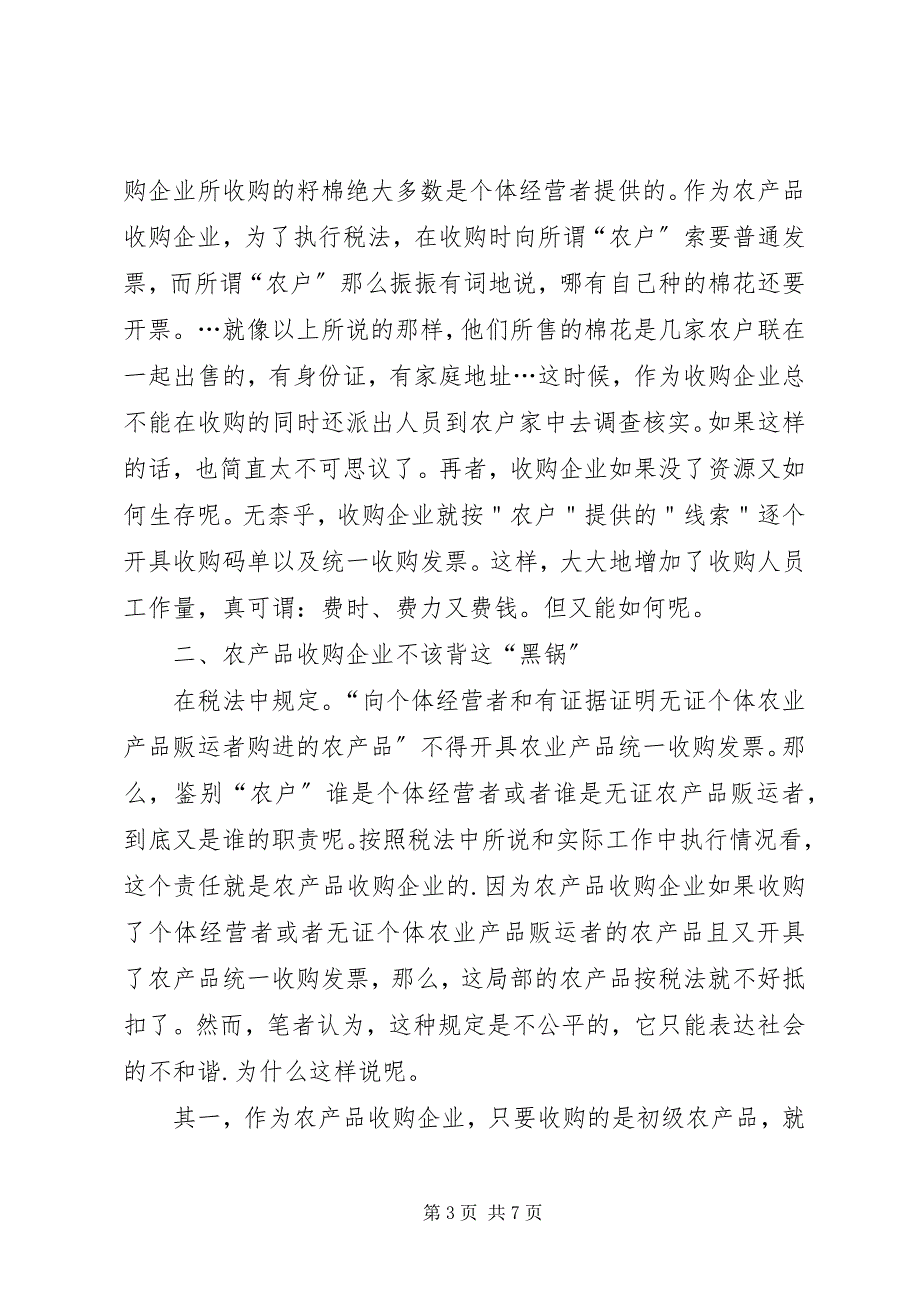 购企业所收购的籽棉绝大多数是个体经营者提供的。作为农产品
收购企业，为了执行税法，在收购时向所谓“农户〞索要普通发
票，而所谓“农户〞那么振振有词地说，哪有自己种的棉花还要
开票。…就像以上所说的那样，他们所售的棉花是几家农户联在
一起出售的，有身份证，有家庭地址…这时候，作为收购企业总
不能在收购的同时还派出人员到农户家中去调查核实。如果这样
的话，也简直太不可思议了。再者，收购企业如果没了资源又如
何生存呢。无柰乎，收购企业就按＂农户＂提供的＂线索＂逐个
开具收购码单以及统一收购发票。这样，大大地增加了收购人员
工作量，真可谓：费时、费力又费钱。但又能如何呢。
二、农产品收购企业不该背这“黑锅〞
在税法中规定。“向个体经营者和有证据证明无证个体农业
产品贩运者购进的农产品〞不得开具农业产品统一收购发票。那
么，鉴别“农户〞谁是个体经营者或者谁是无证农产品贩运者，
到底又是谁的职责呢。按照税法中所说和实际工作中执行情况看，
这个责任就是农产品收购企业的.因为农产品收购企业如果收购
了个体经营者或者无证个体农业产品贩运者的农产品且又开具
了农产品统一收购发票，那么，这局部的农产品按税法就不好抵
扣了。然而，笔者认为，这种规定是不公平的，它只能表达社会
的不和谐.为什么这样说呢。
其一，作为农产品收购企业，只要收购的是初级农产品，就
第 3 页 共 7 页